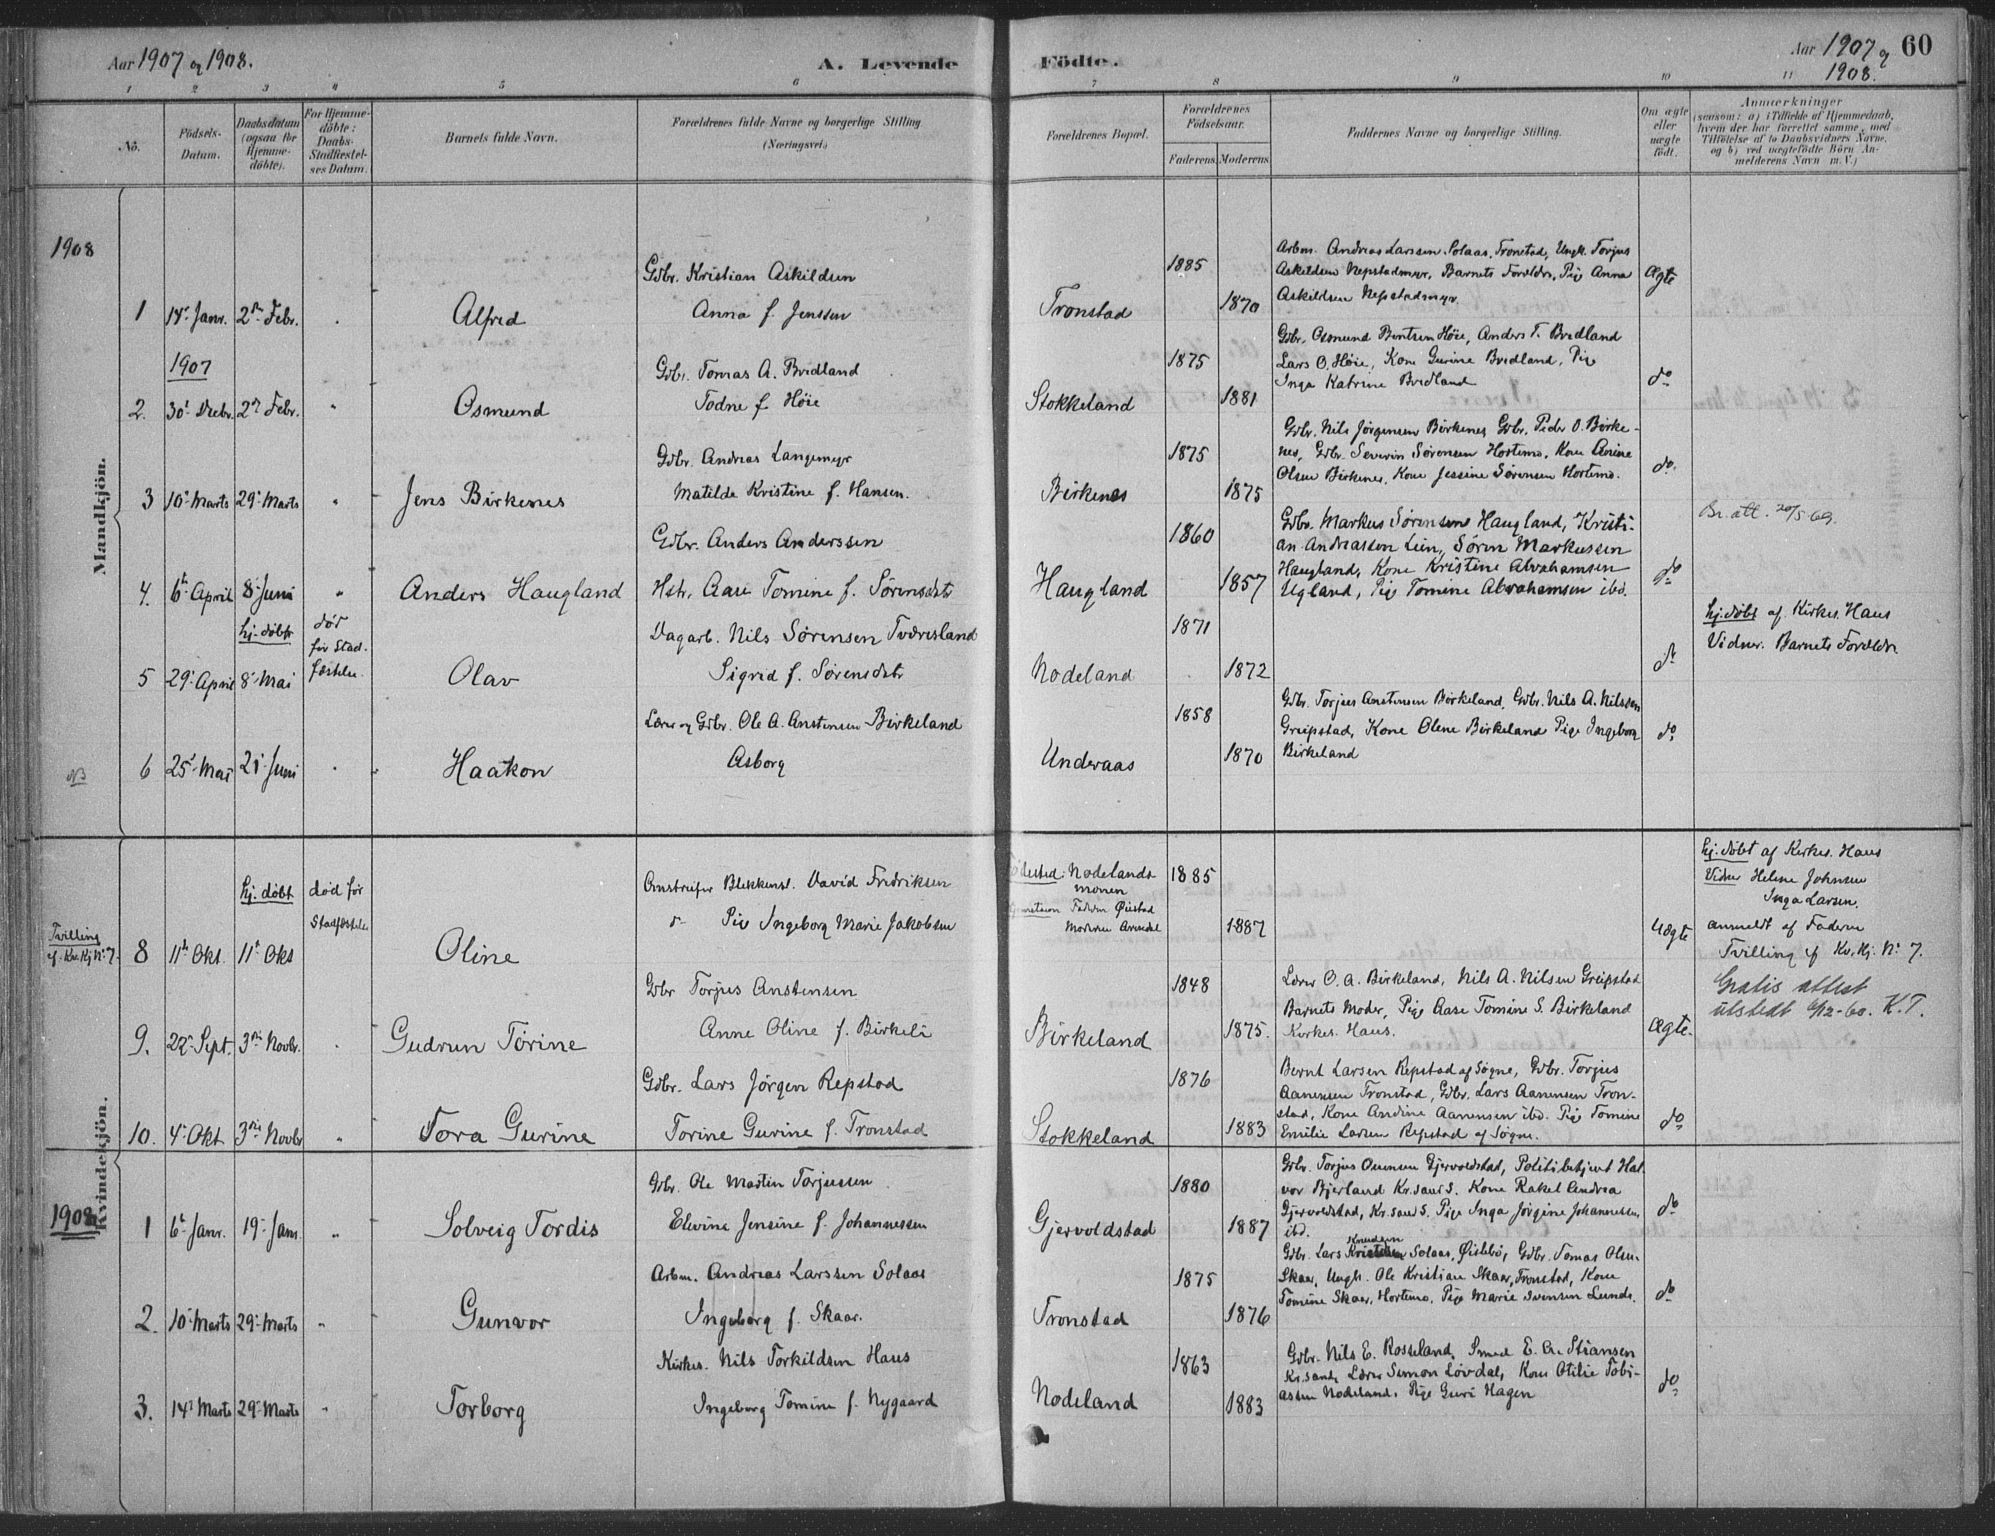 Aar 1907 og 1908.
A. Levende
Födte.
Aar 1907 og 1908.
60
1 2 3 4 5 6 7 8 9 10 11
No.
Födsels-Datum.
Daabsdatum (ogsaa for Hjemme-döbte).
For Hjemme-döbte: Daabs-Stadfæstel-ses Datum.
Barnets fulde Navn.
Forældrenes fulde Navne og borgerlige Stilling (Næringsvei.)
Forældrenes Bopæl.
Forældrenes Födselsaar.
Faderens. Moderens.
Faddernes Navne og borgerlige Stilling.
Om ægte eller uægte födt.
Anmærkninger
(saasom: a) i Tilfælde af Hjemmedaab, hvem der har forrettet samme, med Tilföielse af to Daabsvidners Navne, og b) ved uægtefödte Börn An-melderens Navn m. V.)
Mandkjön.
1908
1 14. Janr. 2den Febr. Alfred
Gdbr. Kristian Askildsen
Anna f. Jenssen
Tronstad 1885 1870
Arbm. Andreas Larsen Solaas, Tronstad, Ungk. Torjus
Askildsen Repstadmyr, Barnets Forældre, Pige Anna
Askildsen Repstadmyr.
Ægte
1907
2. 30. Decbr. 2den Febr. " Osmund
Gdbr. Tomas A. Bredland
Todne f. Höie
Stokkeland 1875 1881
Gdbr. Osmund Bentsen Höie, Anders T. Bredland
Lars O. Höie, Kone Gurine Bredland, Pige
Inga Katrine Bredland
do
3 10. Marts 29. Marts " Jens Birkenes
Gdbr. Andreas Langemyr
Matilde Kristine f. Hansen.
Birkenes 1875 1875
Gdbr. Nils Jørgensen Birkenes, Gdbr. Peder O. Birke-
nes, Gdbr. Severin Sørensen Hortemo, Kone
Olsen Birkenes, Kone Jessine Sørensen Hortemo.
do.
Br. att. 20/5-69.
4. 6. April 8. Juni " Anders Haugland
Gdbr. Anders Anderssen
Hstr. Aase Tomine f. Sørensdtr
Haugland 1860 1857
Gdbr. Markus Sørensen Haugland, Kristi-
an Andreassen Lien, Søren Markussen
Haugland, Kone Kristine Abrahamsen
Ugland, Pige Tomine Abrahamsen ibd.
do
5 29. April hj. døbt 8. Mai dør før Stad-fæstelse. Olav
Dagarb. Nils Sørensen Tveresland
Sigrid f. Sørensdtr
Nodeland 1871 1872
do
hj. døbt af Kirkes. Haus
Vidner. Barnets Forældre.
NB 6 25. Mai 21. Juni Haakon
Lærer og Gdbr. Ole A. Anstensen Birkeland
Asborg
Underaas 1858 1870
Gdbr. Torjus Anstensen Birkeland, Gdbr. Nils A. Nilssen
Greipstad, Kone Olene Birkeland Pige Ingeborg
Birkeland
do
Kvindekjön.
Tvilling cf. Kv. Kj. No 7.
8 11. Okt. hj. døbt 11. Okt død før Stadfæstelse Oline
Blekkensl. David Fredriksen
Pige Ingeborg Marie Jakobsen
Fødested: Nodelands-monen
Faderen Øiestad
Moderen Arendal
1885 1887
Uægte
hj. døbt af Kirkes. Haus
Vidner Helene Johnsen
Inga Larsen.
anmeldt af Faderen
Tvilling cf Kv. Kj. No 7.
9. 22. Sept. 3die Novbr. Gudrun Torine
Gdbr Torjus Anstensen
Anne Oline f. Birkeli
Birkeland 1848 1875.
Lærer O. A. Birkeland, Nils A. Nilsen Greipstad
Barnets Moder, Pige Aase Tomine S. Birkeland
Kirkes. Haus.
Ægte.
Gratis attest
utstedt 6/12-60. K.T.
10. 4. Okt. 3die Novbr " Tora Gurine
Gdbr. Lars Jørgen Repstad
Torine Gurine f. Tronstad
Stokkeland 1876 1883
Bernt Larsen Repstad af Søgne, Gdbr. Torjus
Aanensen Tronstad, Gdbr. Lars Aanensen Tron-
stad, Kone Andine Aanensen ibd. Pige Tomine
Emilie Larsen Repstad af Søgne.
do
1908
1 6. Janr. 19. Janr " Solveig Tordis
Gdbr. Ole Martin Torjussen
Elvine Jensine f. Johannessen
Gjervoldstad 1880 1887
Gdbr. Torjus Gjervoldstad, Politibetjent Hal-
vor Bjerland Kr.sand S. Kone Rakel Andrea
Gjervoldstad, Kr.sand S. Pige Inga Jørgine Johannessen
ibd.
do
2. 10. Marts 29. Marts " Gunvor
Arbm. Andreas Larssen Solaas
Ingeborg f. Skaar.
Tronstad 1875 1876
Gdbr. Lars Knudsen Solaas, Øislebø, Gdbr. Tomas Olsen
Skaar, Ungk. Ole Kristian Skaar, Tronstad, Kone
Tomine Skaar, Hortemo, Pige Marie Svensen Lunde.
do
3. 14. Marts 29. Marts " Torborg
Kirkes. Nils Torkildsen Haus
Ingeborg Tomine f. Nygaard
Nodeland 1863 1883
Gdbr. Nils E. Rosseland, Smed E. Stiansen
Kr.sand, Lærer Simon Løvdal, Kone Otilie Tobi-
assen Nodeland, Pige Guri Hagen
do